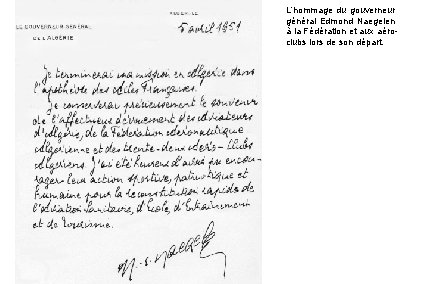 LE GOUVERNEUR GÉNÉRAL
DE L'ALGÉRIE
5 avril 1951
Je terminerai ma mission en Algérie dans
l'apothéose des Ailes Françaises.
Je conserverai précieusement le souvenir
de l'affectueux dévouement des aviateurs
d'Algérie, de la Fédération aéronautique
Algérienne et des trente-deux aéro-clubs
Algériens. J'ai été heureux d'avoir pu encou-
rager leur action sportive, patriotique et
humaine pour la reconstitution rapide de
l'aviation sanitaire, d'École, d'Entraînement
et de Tourisme.
M.-E. Naegelen
L'hommage du gouverneur
général Edmond Naegelen
à la Fédération et aux aéro-
clubs lors de son départ.